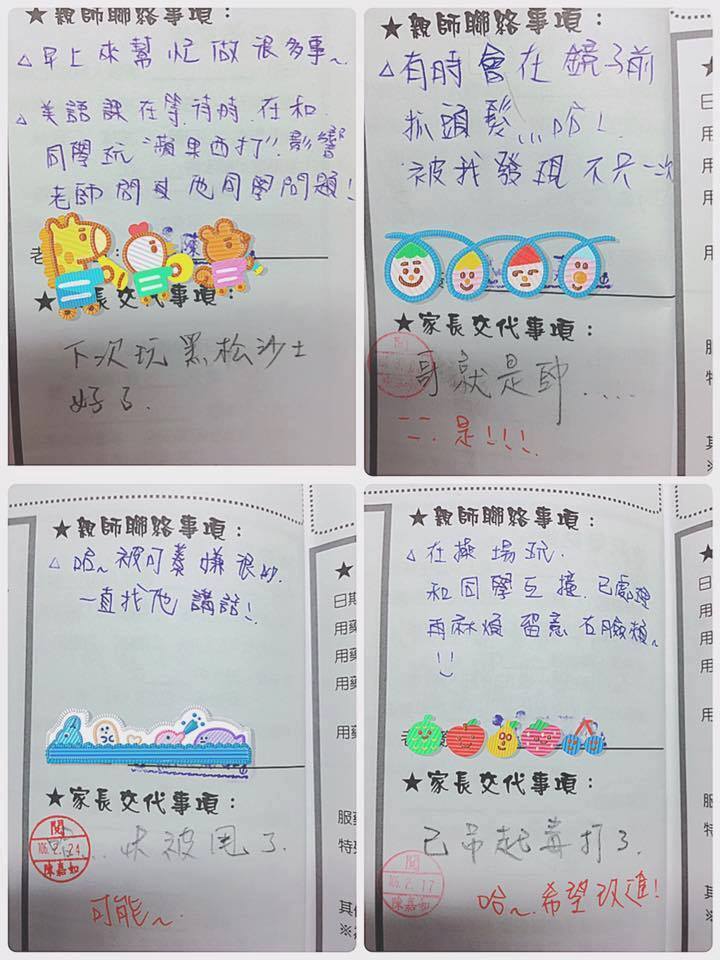 ★親師聯絡事項：
△早上來幫忙做很多事~
△美語課在等待時.在和
同學玩"蘋果西打"影響
老師問其他同學問題!
老
：
★家長交代事項：
下次玩黑松沙士
好了.
★親師聯絡事項：
△有時會在鏡子前
抓頭髮...哈!
被我發現不只一次
★家長交代事項：
閱
哥就是帥....
ㄧㄧ.是!!!
日
用
用
用
用
服
特
其
※
★親師聯絡事項：
△哈~被可蓁嫌很吵.
一直找他講話!
★家長交代事項：
閱
106.2.24
陳嘉如
...快被甩了.
可能~
★
日期
用藥
用藥
用藥
用藥
服藥
特殊
其他
※
★親師聯絡事項：
△在操場玩.
和同學互撞.已處理
再麻煩留意右臉頰~
!!
老
★家長交代事項：
已吊起毒打了.
閱
106.2.17
陳嘉如
哈~.希望改進!
★
日
用
用
用
用
服
特
其
※